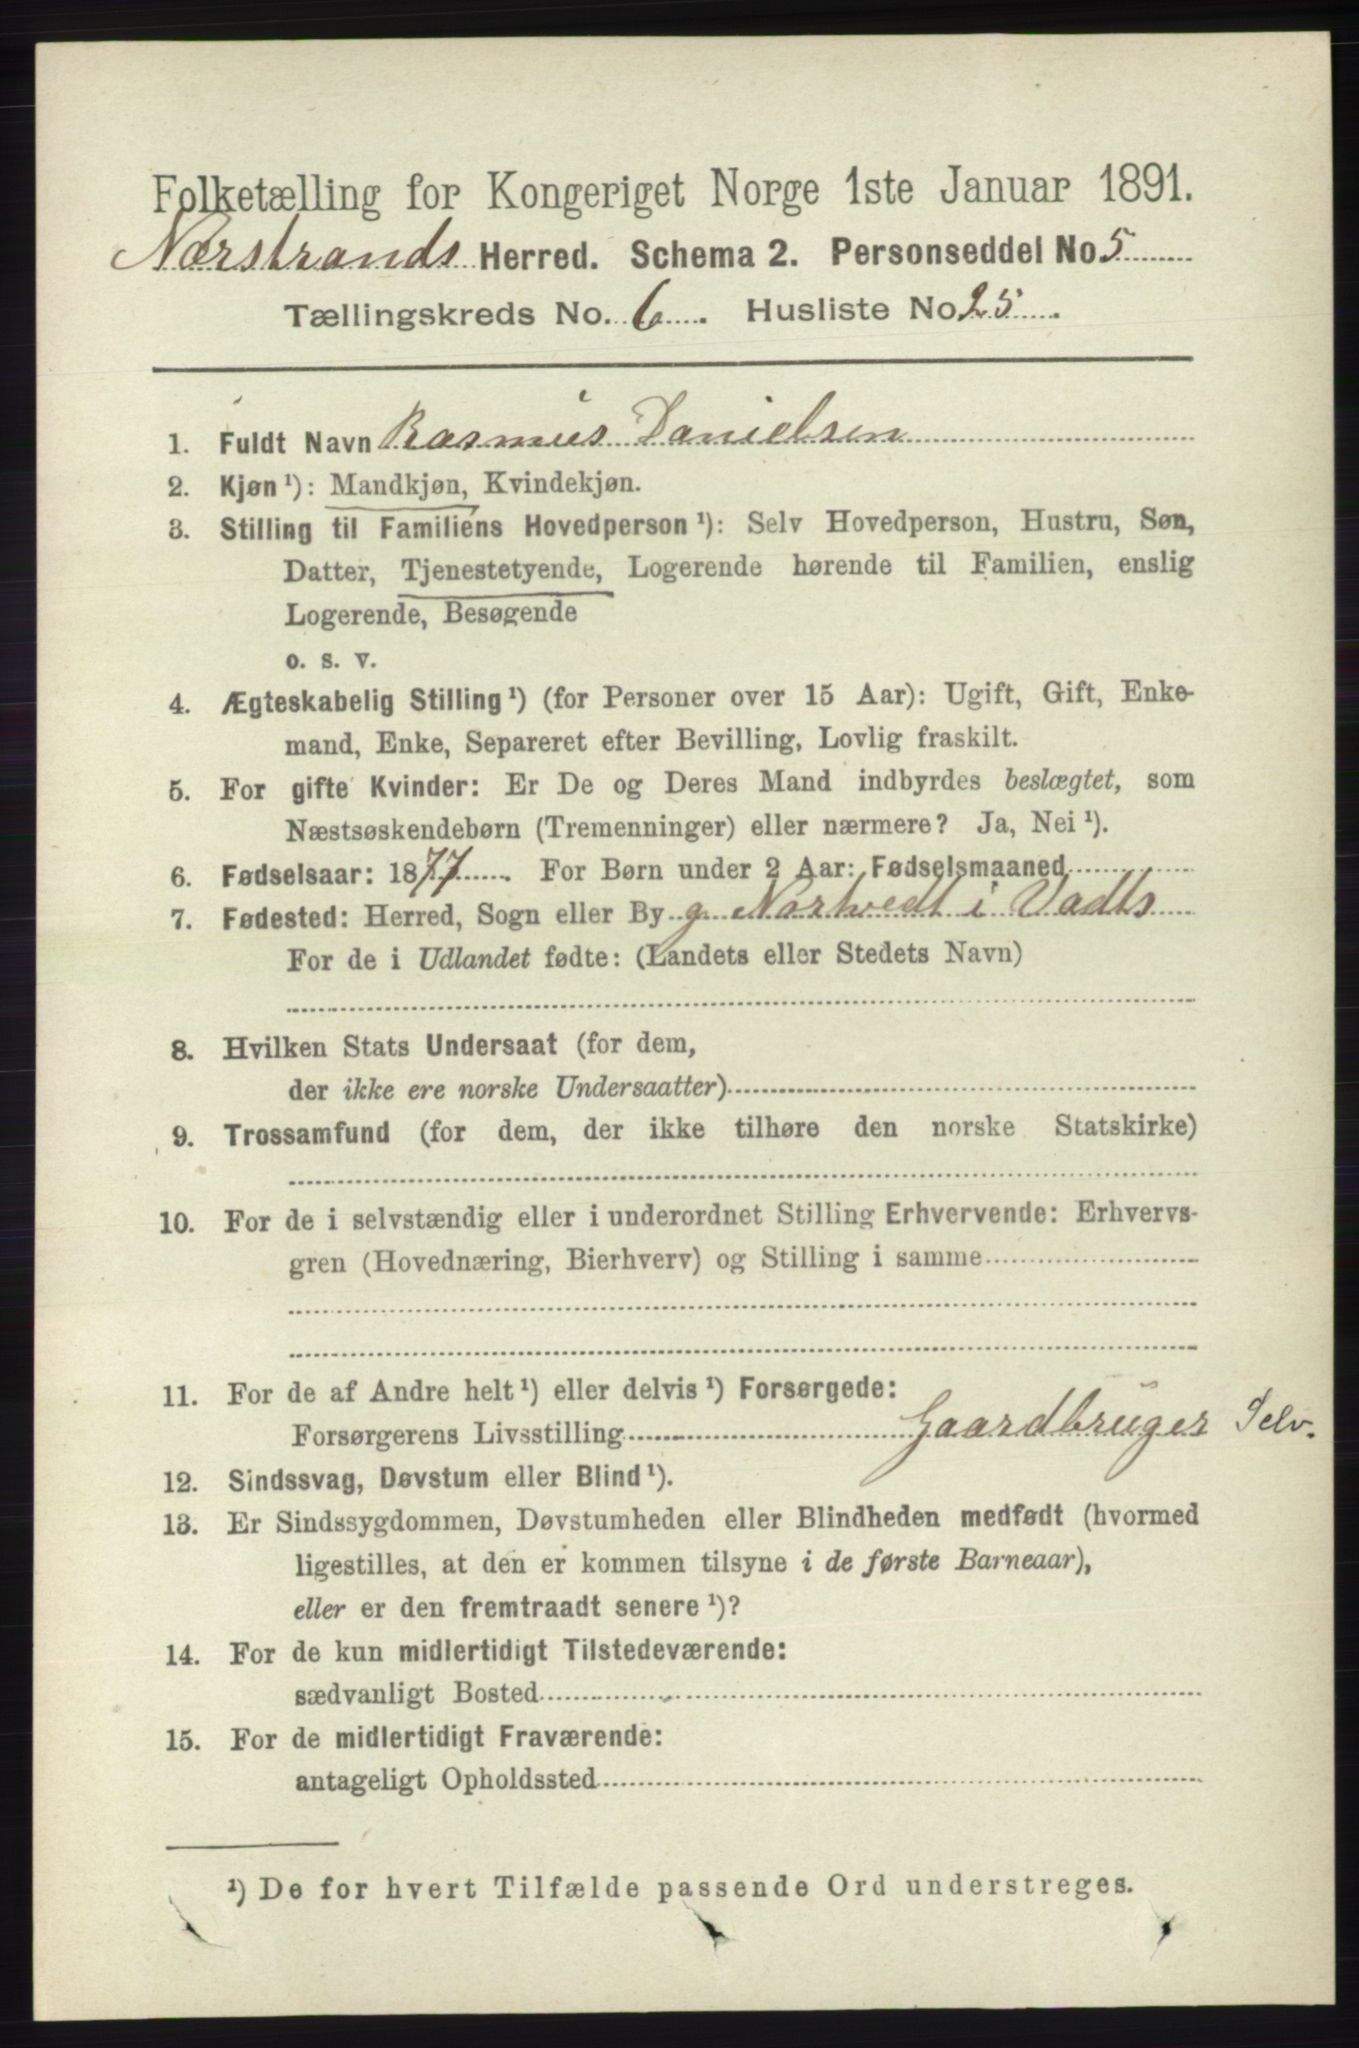 Folketælling for Kongeriget Norge 1ste Januar 1891.
Nærstrands Herred. Schema 2. Personseddel No 5
Tællingskreds No. 6. Husliste No 25.
1. Fuldt Navn Rasmus Danielsen
2. Kjøn ¹): Mandkjøn, Kvindekjøn.
3. Stilling til Familiens Hovedperson ¹): Selv Hovedperson, Hustru, Søn,
Datter, Tjenestetyende, Logerende hørende til Familien, enslig
Logerende, Besøgende
o. s. v.
4. Ægteskabelig Stilling ¹) (for Personer over 15 Aar): Ugift, Gift, Enke-
mand, Enke, Separeret efter Bevilling, Lovlig fraskilt.
5. For gifte Kvinder: Er De og Deres Mand indbyrdes beslægtet, som
Næstsøskendebørn (Tremenninger) eller nærmere? Ja, Nei ¹).
6. Fødselsaar: 1877. For Børn under 2 Aar: Fødselsmaaned
7. Fødested: Herred, Sogn eller By g. Nortvedt i Vadts
For de i Udlandet fødte: (Landets eller Stedets Navn)
8. Hvilken Stats Undersaat (for dem,
der ikke ere norske Undersaatter)
9. Trossamfund (for dem, der ikke tilhøre den norske Statskirke)
10. For de i selvstændig eller i underordnet Stilling Erhvervende: Erhvervs-
gren (Hovednæring, Bierhverv) og Stilling i samme
11. For de af Andre helt ¹) eller delvis ¹) Forsørgede:
Forsørgerens Livsstilling Gaardbruger Selv.
12. Sindssvag, Døvstum eller Blind ¹).
13. Er Sindssygdommen, Døvstumheden eller Blindheden medfødt (hvormed
ligestilles, at den er kommen tilsyne i de første Barneaar),
eller er den fremtraadt senere ¹)?
14. For de kun midlertidigt Tilstedeværende:
sædvanligt Bosted
15. For de midlertidigt Fraværende:
antageligt Opholdssted
¹) De for hvert Tilfælde passende Ord understreges.